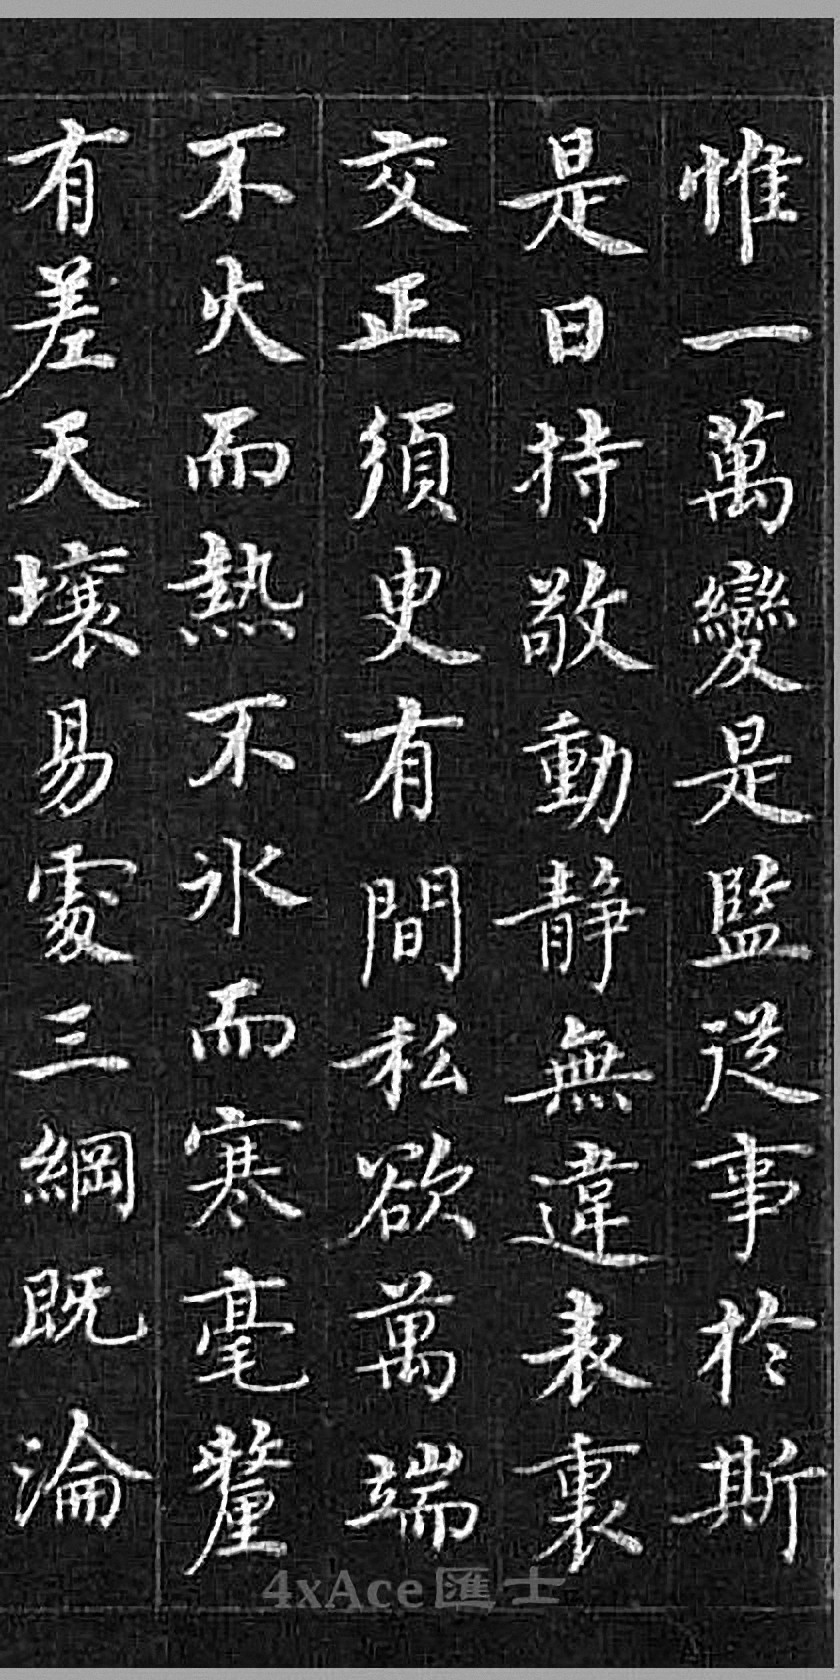 惟一萬變是監從事於斯
是曰持敬動静無違表裏
交正須臾有間私欲萬端
不火而熱不氷而寒毫釐
有差天壤易處三綱既淪
4xAce匯士